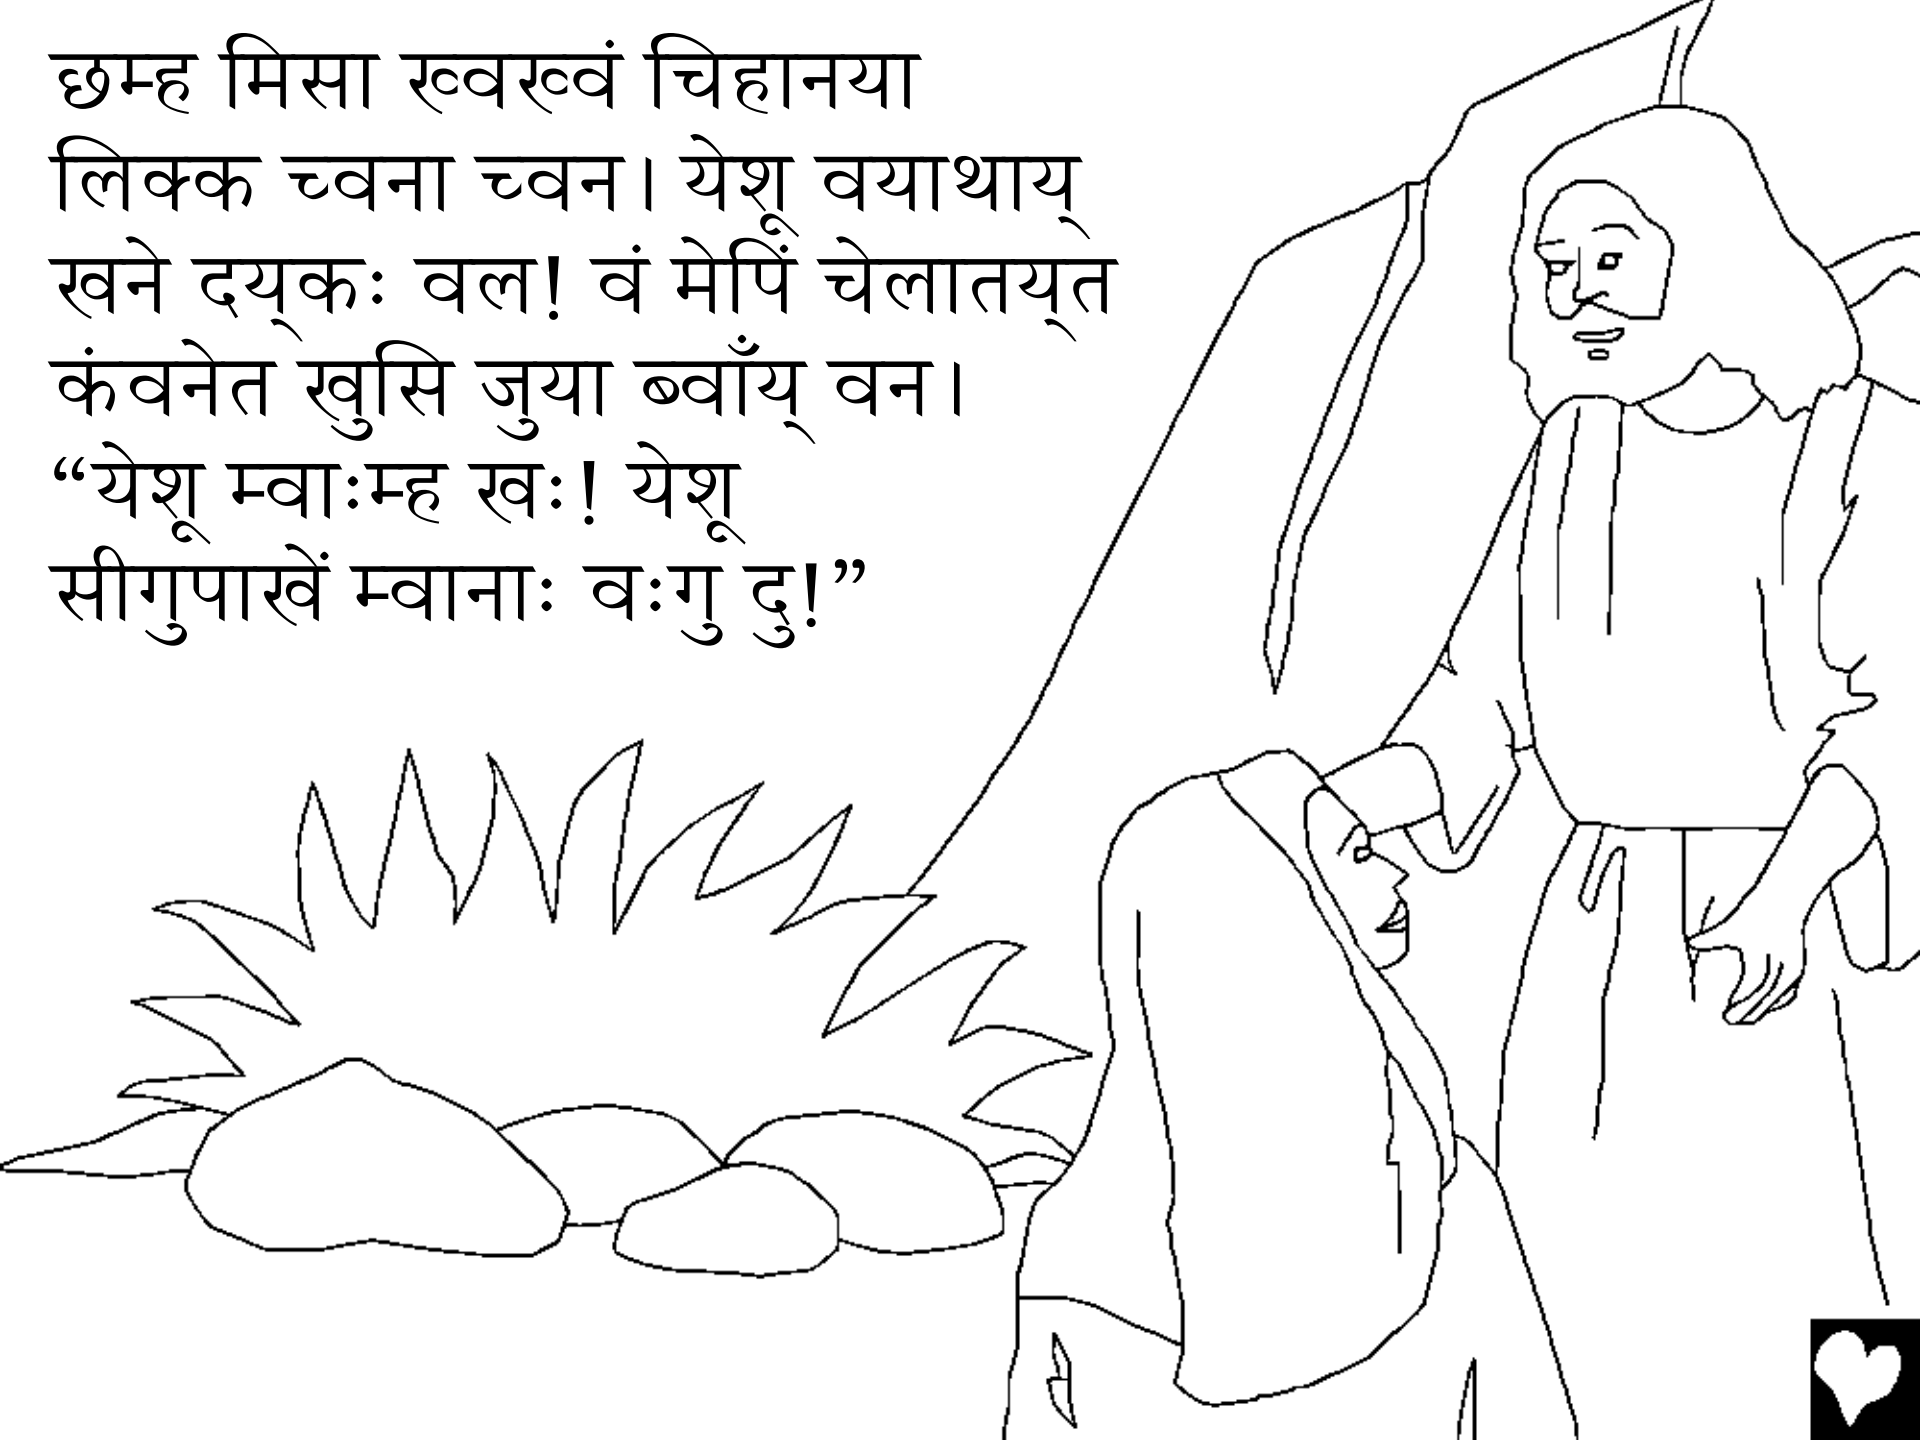 छम्ह मिसा ख्वख्वं चिहानया
लिक्क च्वना च्वन। येशू वयाथाय्
खने दय्‌कः वल! वं मेपिं चेलातय्‌त
कंवनेत खुसि जुया ब्वाँय् वन।
“येशू म्वाःम्ह खः! येशू
सीगुपाखें म्वानाः वःगु दु!”